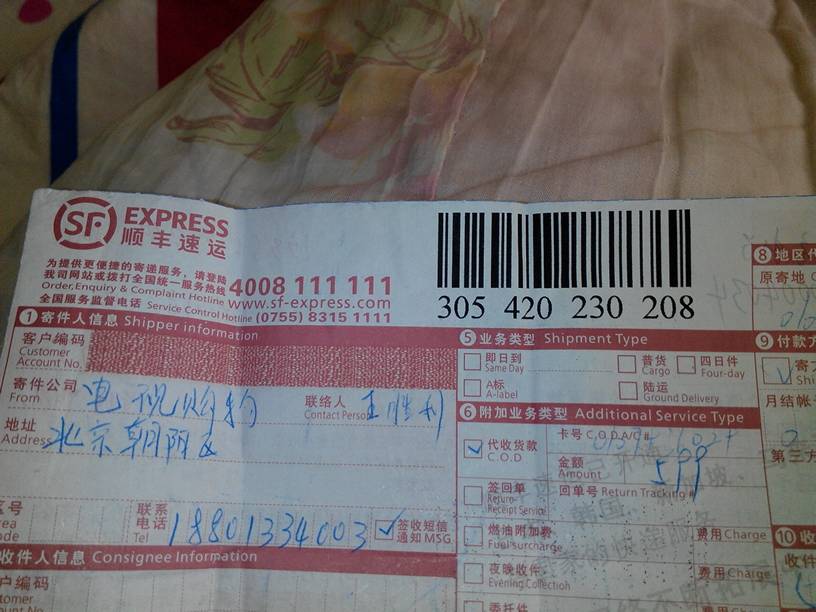 SF EXPRESS
顺丰速运
为提供更便捷的寄递服务，请登陆
我司网站或拨打全国统一服务热线 4008 111 111
Order,Enquiry & Complaint Hotline www.sf-express.com
全国服务监督电话 Service Control Hotline (0755) 8315 1111
305 420 230 208
1 寄件人信息 Shipper information
客户编码
Customer
Account No.
寄件公司 电视购物
From
联络人 王胜利
Contact Person
地址 北京朝阳区
Address
区号
Area
Code
联系
电话
Tel 18801334003
签收短信
通知MSG
收件人信息 Consignee Information
客户编码
Customer
5 业务类型 Shipment Type
即日到
Same Day
普货
Cargo
四日件
Four-day
A标
A-label
陆运
Ground Delivery
6 附加业务类型 Additional Service Type
代收货款
C.O.D
卡号 C.O.D A/C#
金额
Amount 599
签回单
Return
Receipt Service
回单号 Return Tracking #
燃油附加费
Fuel surcharge
费用Charge
夜晚收件
Evening Collection
费用Charge
委托件
8 地区代
原寄地
9 付款方
寄方
月结帐
第三方
10 收
收件